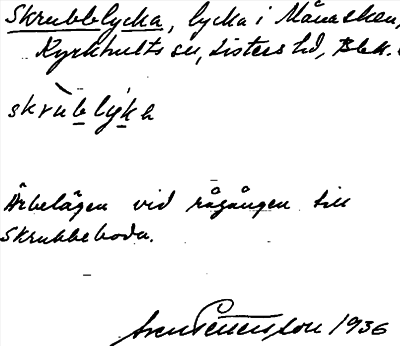 Skrubblycka, lycka i Månasken,
Kyrkhults sn, Listers hd, Blek.
skrùblýka
Är belägen vid rågången till
Skrubbeboda.
Sven Pettersson 1936